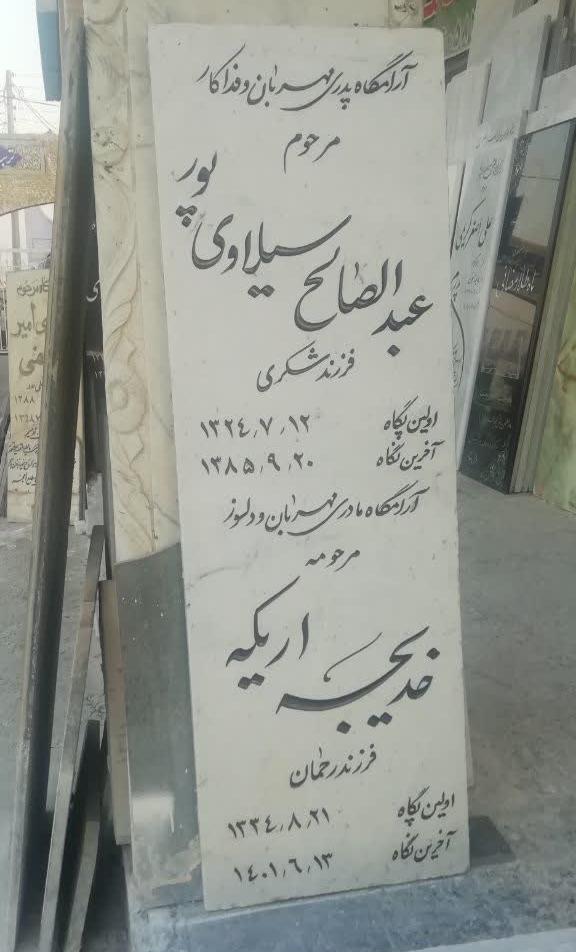 آرامگاه پدری مهربان و فداکار
مرحوم
عبدالصالح سیلاوی پور
فرزند شکری
اولین پگاه ۱۳۲۴٫۷٫۱۲
آخرین نگاه ۱۳۸۵٫۹٫۲۰
آرامگاه مادری مهربان و دلسوز
مرحومه
خدیجه اریکه
فرزند رحمان
اولین پگاه ۱۳۳۴٫۸٫۲۱
آخرین نگاه ۱۴۰۱٫۶٫۱۳